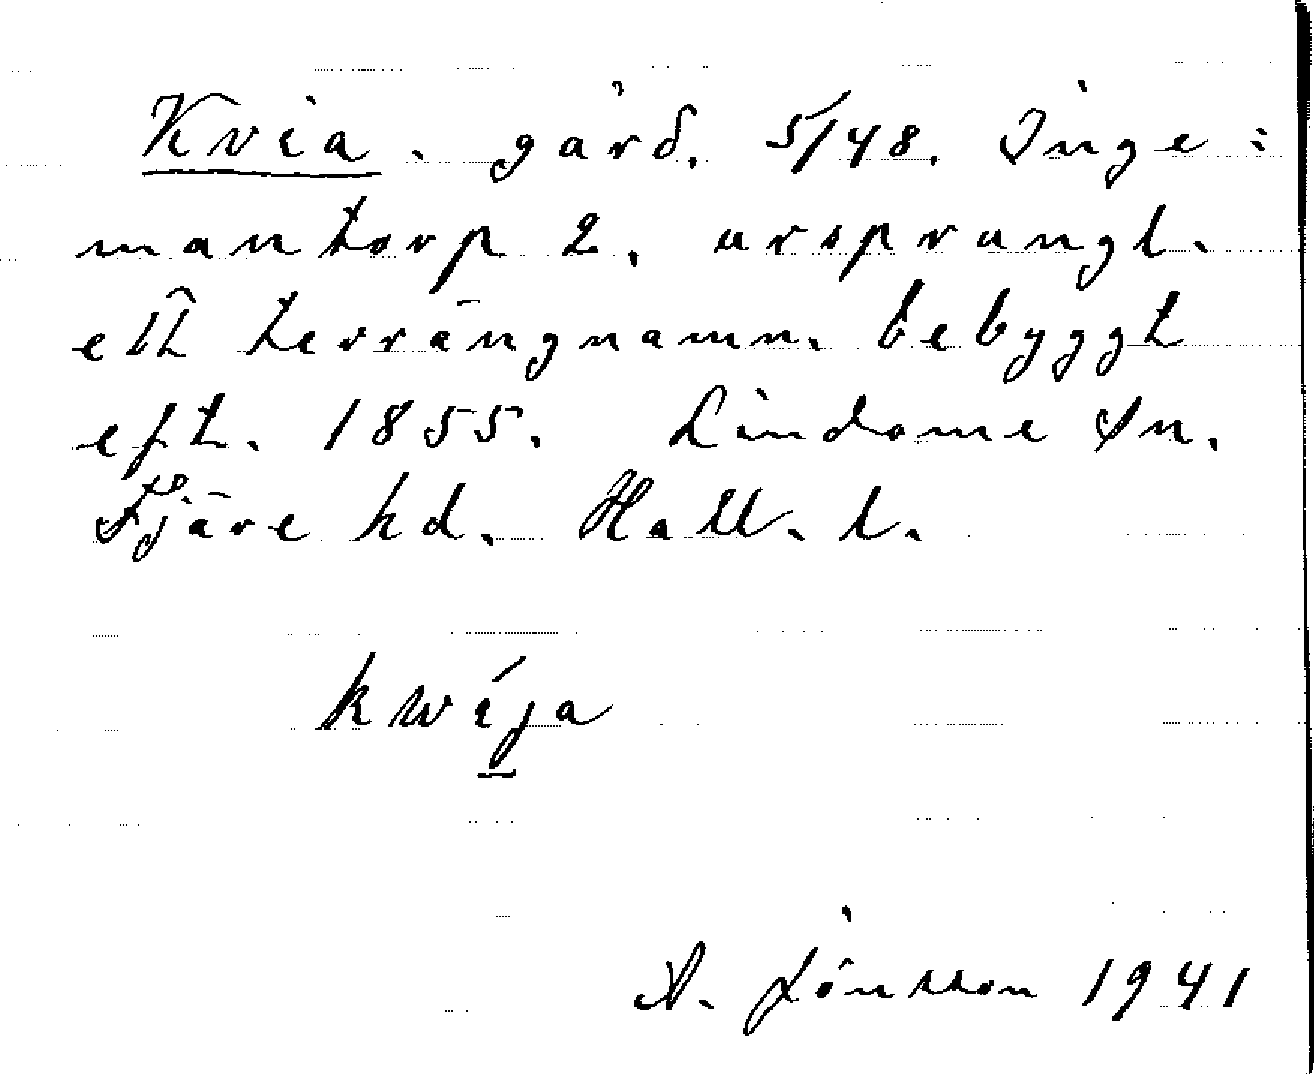 Kvia. gård. 5/48. Inge:
mantorp 2, ursprungl.
ett terrängnamn. bebyggt
eft. 1855. Lindome sn.
Fjäre hd. Hall. l.
kwíja
A. Jönsson 1941